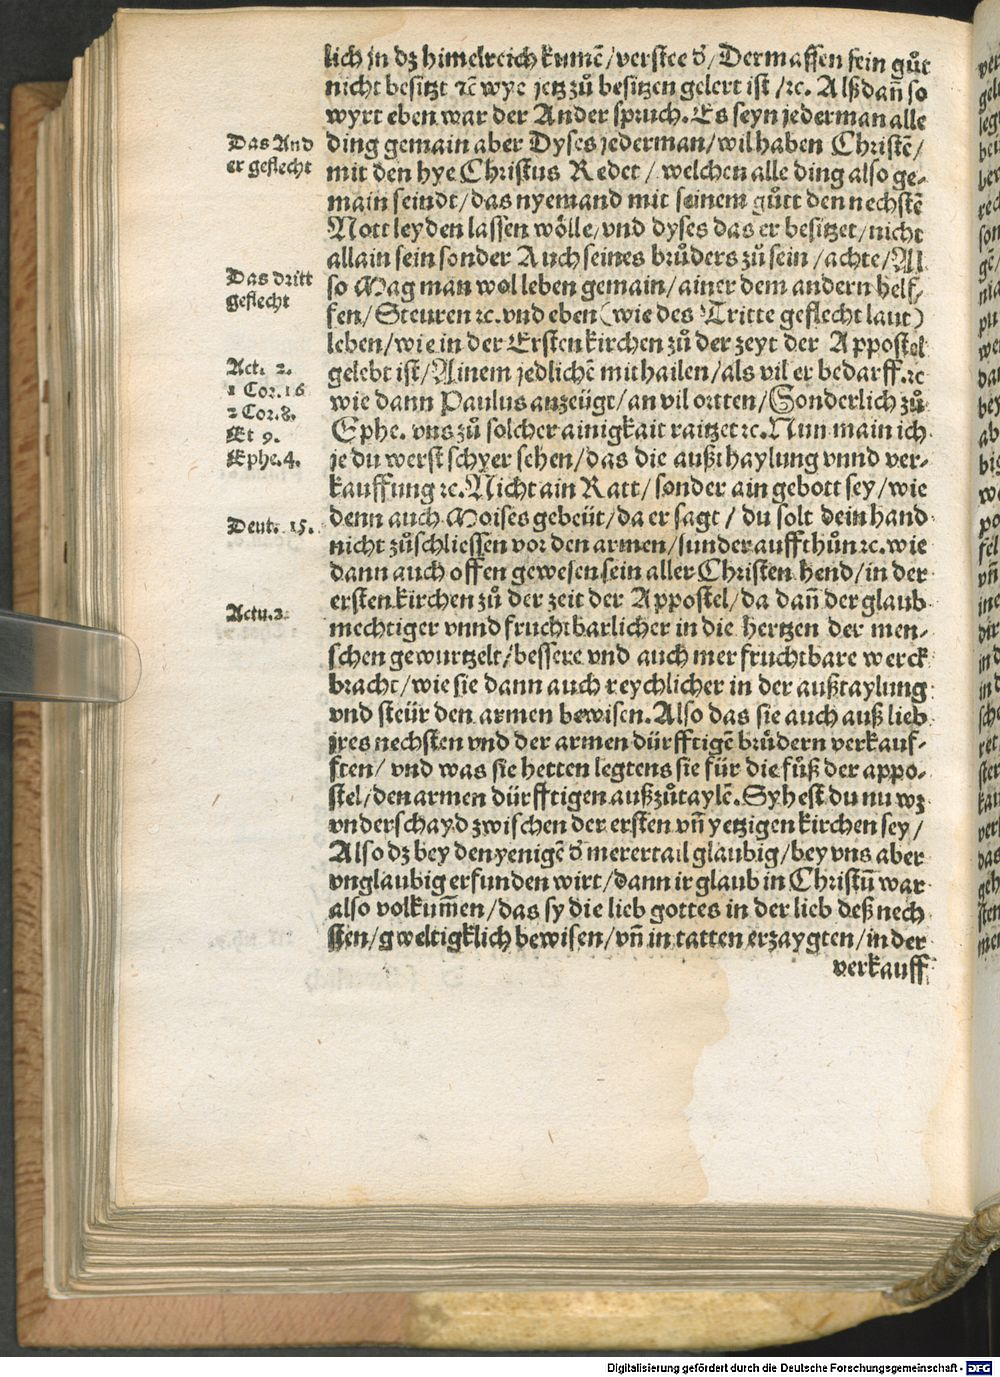 lich jn dz himelreich kumē / verstee d̄ / Dermassen sein gůt
nicht besitzt ꝛc̄ wye jetz zů besitzen gelert ist / ꝛc. Alßdañ so
wyrt eben war der Ander spruch. Es seyn jederman alle
Das And
er geflecht
ding gemain aber Dyses jederman / wil haben Christē /
mit den hye Christus Redet / welchen alle ding also ge⸗
main seindt / das nyemand mit seinem gůtt den nechstē
Nott leyden lassen wölle / vnd dyses das er besitzet / nicht
allain sein sonder Auch seines brůders zů sein / achte / Al
Das dritt
geflecht
so Mag man wol leben gemain / ainer dem andern helf⸗
fen / Steuren ꝛc. vnd eben (wie des Tritte geflecht laut)
leben / wie in der Ersten kirchen zů der zeyt der Appostel
Act. 2.
1 Cor. 16
2 Cor. 8.
Et 9.
Ephe. 4.
gelebt ist / Ainem jedlichē mithailen / als vil er bedarff. ꝛc
wie dann Paulus anzeügt / an vil ortten / Sonderlich zů
Ephe. vns zů solcher ainigkait raitzet ꝛc. Nun main ich
je du werst schyer sehen / das die außthaylung vnnd ver⸗
kauffung ꝛc. Nicht ain Ratt / sonder ain gebott sey / wie
Deut. 15.
denn auch Moises gebeüt / da er sagt / du solt dein hand
nicht zůschliessen vor den armen / sunder auffthůn ꝛc. wie
dann auch offen gewesen sein aller Christen hend / in der
Actu. 3
ersten kirchen zů der zeit der Appostel / da dañ der glaub
mechtiger vnnd fruchtbarlicher in die hertzen der men⸗
schen gewurtzelt / bessere vnd auch mer fruchtbare werck
bracht / wie sie dann auch reychlicher in der außtaylung
vnd steür den armen bewisen. Also das sie auch auß lieb
jres nechsten vnd der armen dürfftigē brůdern verkauf⸗
ften / vnd was sie hetten legtens sie für die fůß der appo⸗
stel / den armen dürfftigen außzůtaylē. Syhest du nu wz
vnderschayd zwischen der ersten vñ yetzigen kirchen sey /
Also dz bey den yenigē d̄ merertail glaubig / bey vns aber
vnglaubig erfunden wirt / dann ir glaub in Christū war
also volkum̄en / das sy die lieb gottes in der lieb deß nech
sten / gweltigklich bewisen / vñ in tatten erzaygten / in der
verkauff
Digitalisierung gefördert durch die Deutsche Forschungsgemeinschaft - DFG